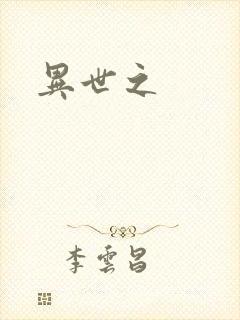 異世之
李雲昌